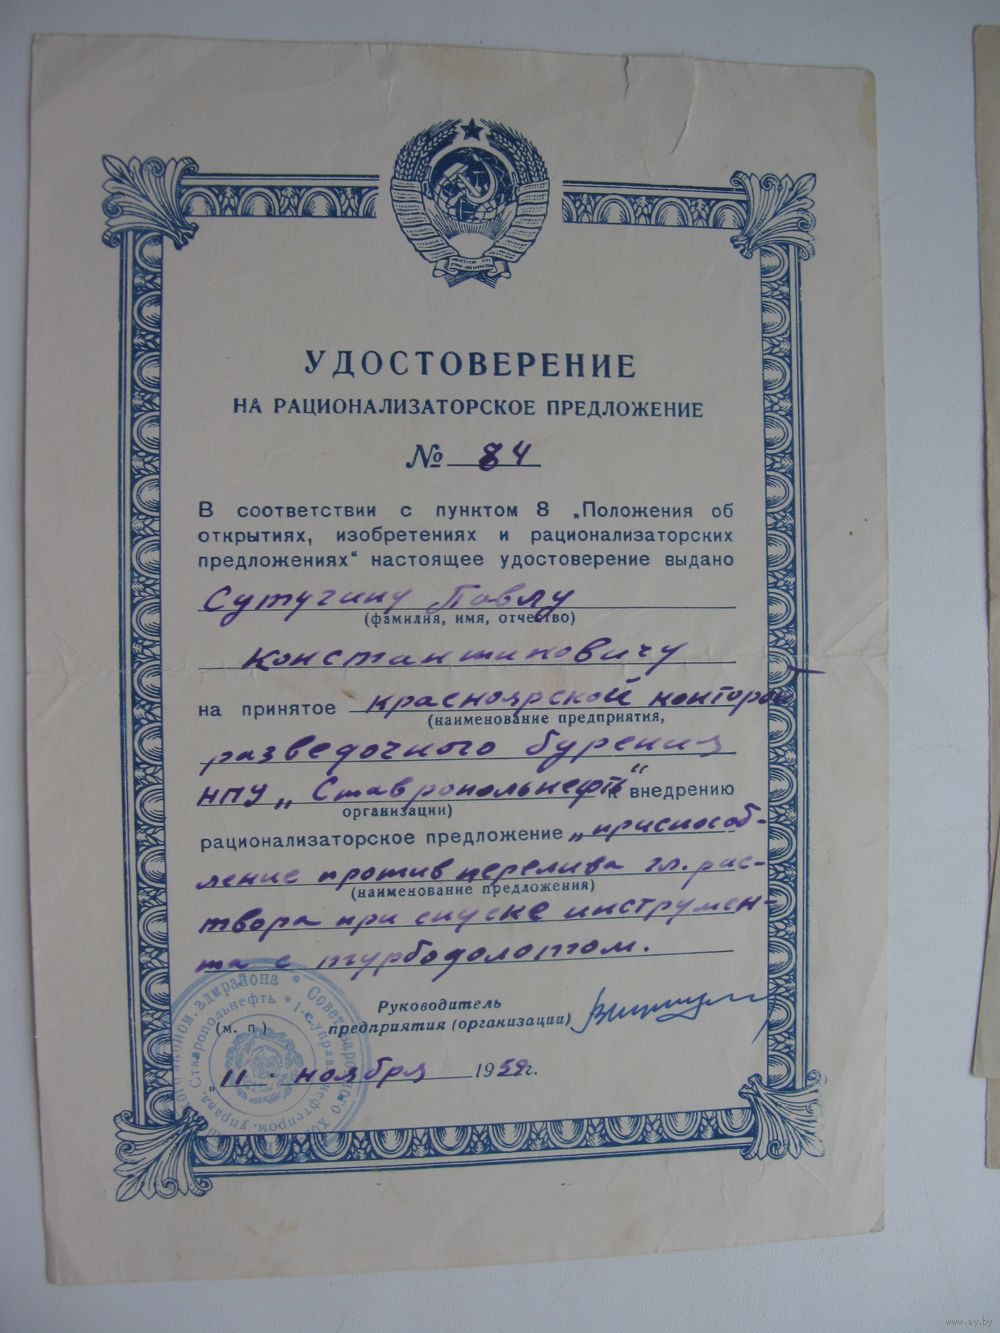 УДОСТОВЕРЕНИЕ
НА РАЦИОНАЛИЗАТОРСКОЕ ПРЕДЛОЖЕНИЕ
№ 84
В соответствии с пунктом 8 „Положения об
открытиях, изобретениях и рационализаторских
предложениях“ настоящее удостоверение выдано
Сутугину Павлу
(фамилия, имя, отчество)
Константиновичу
на принятое Красноярской конторой
(наименование предприятия,
разведочного бурения
НПУ „Ставропольнефть“ к внедрению
организации)
рационализаторское предложение „приспособ-
ление против перелива гл. рас-
(наименование предложения)
твора при спуске инструмен-
та с турбодолотом.
Руководитель
(м. п.) предприятия (организации)
„11“ ноября 1959г.
Ставропольнефть * 1-е управл.
нефтепром. управл.
www.ay.by